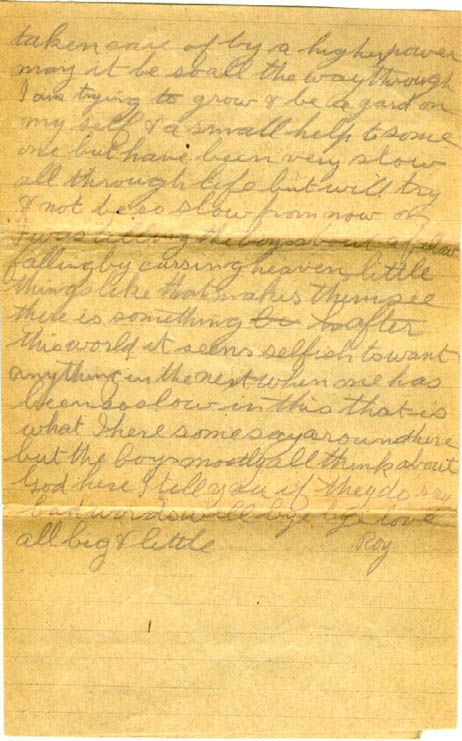 taken care of by a higher power
may it be so all the way through
I am trying to grow & be a gard on
my self & a small help to some
one but have been very slow
all through life but will try
& not be so slow from now on
I was telling the boys about a
falling by cursing heaven little
things like that makes them see
there is something after
this world it seems selfish to want
anything in the next when one has
been so slow in this that is
what I here some say around here
but the boys mostly all think about
God here I tell you if they do say
bad words will bye bye love
all big & little Roy